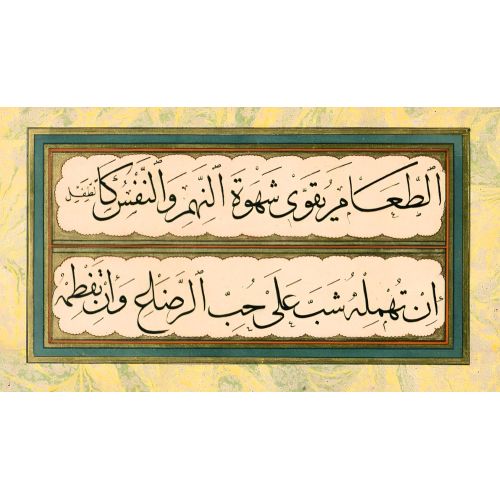 الطعام يقوى شهوة النهم والنفس كالطفل
إن تهمله شب على حب الرضاع وإن تفطمه